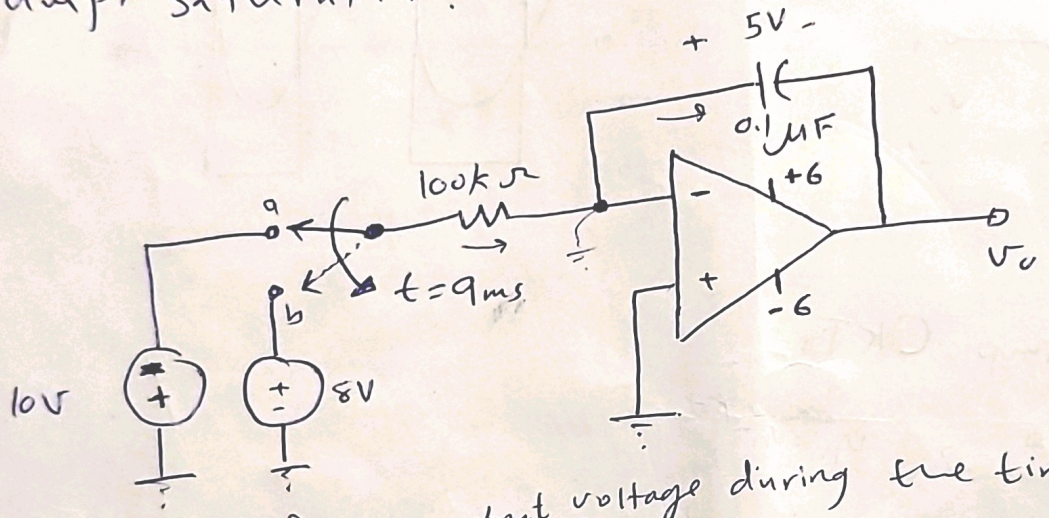 + 5V -
0.1μF
100k Ω
+6
-
a
+
t=9ms
b
-6
Vo
10V
-
+
+
-
8V
voltage during the